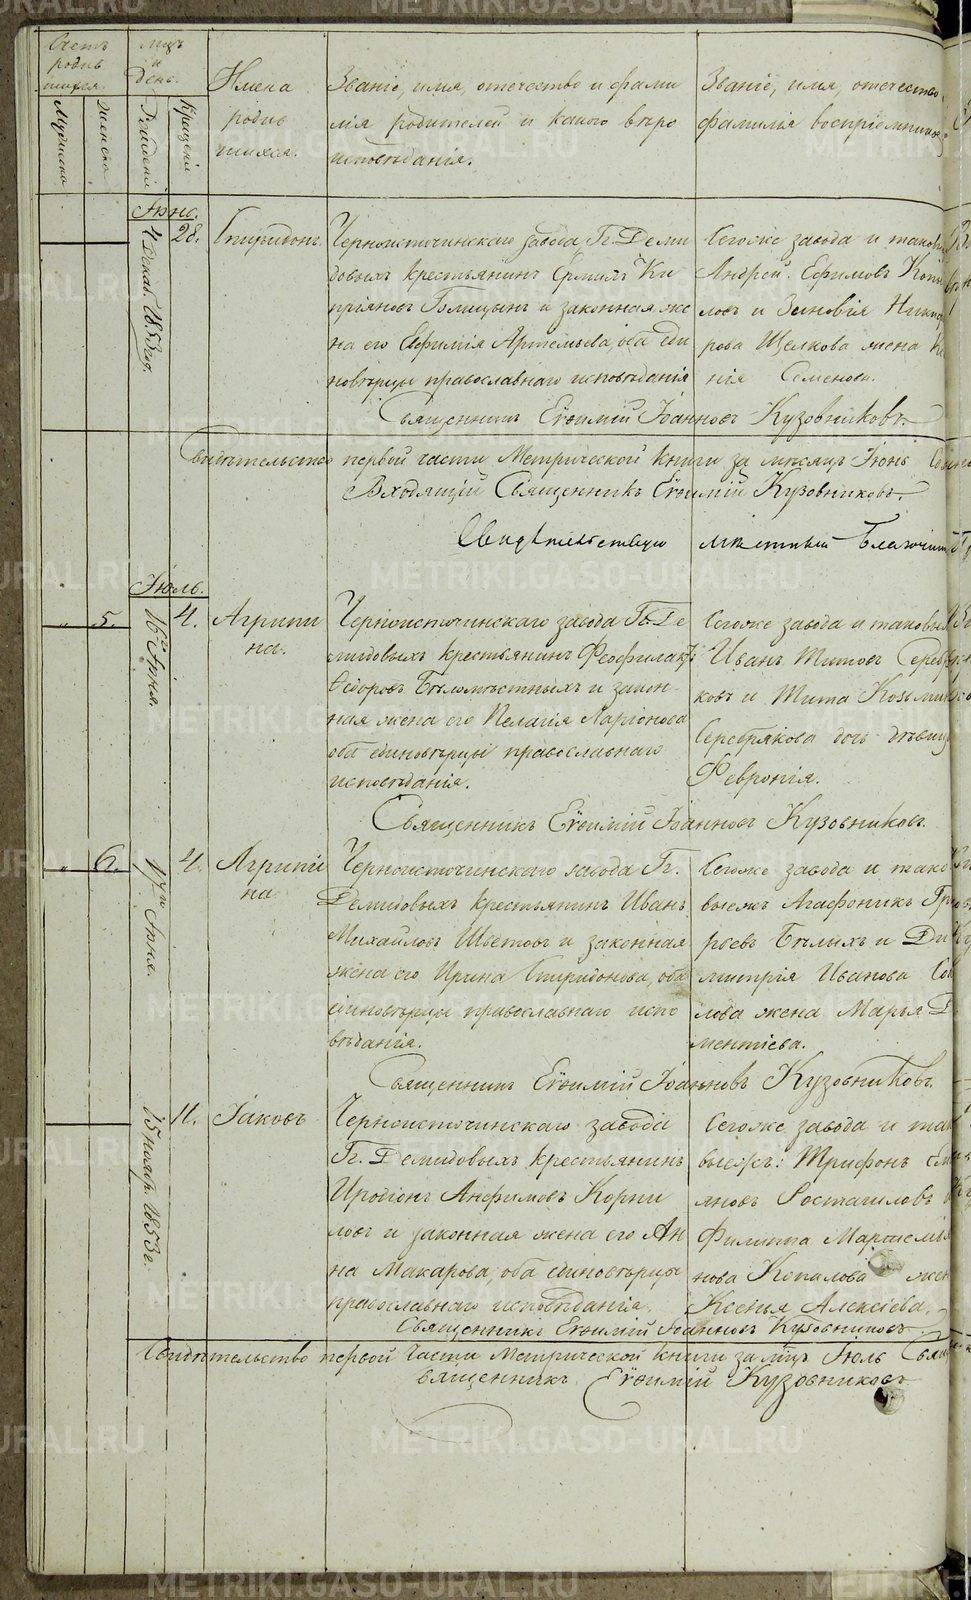 Счетъ родив шихся.
Мужеска
Женска
мцъ и день.
Рожденія
Крещенія
Имена родив шихся.
Званіе, имя, отечество и фами
лія родителей и какого вѣро
исповѣданія.
Званіе, имя, отечество
фамилія воспріемниковъ
Іюнь.
4 Декаб. 1853 год.
28.
Спиридонъ.
Черноисточинскаго завода Гг. Деми
довыхъ крестьянинъ Ермилъ Ки
пріяновъ Голицынъ и законная же
на его Евфимія Артемьева, оба еди
новѣрцы православнаго исповѣданія
Тогоже завода и таковы
Андрей Ефимовъ Копы
ловъ и Зиновія Никиф
рова Щелкова жена
нія Семенова.
Священникъ Евѳимій Іоанновъ Кузовниковъ.
Свидѣтельство первой части Метрической книги за мѣсяцъ Іюнь
Входящій Священникъ Евѳимій Кузовниковъ.
Свидѣтельствую мѣстный Благочин
Іюль.
„
5.
16го Іюня.
4.
Агрипи
на.
Черноисточинскаго завода Гг. Де
мидовыхъ крестьянинъ Феофилактъ
Ѳедоровъ Бѣломѣстныхъ и закон
ная жена его Пелагія Ларіонова
оба единовѣрцы православнаго
исповѣданія.
Тогоже завода и таковы
Иванъ Титовъ Сереб
ковъ и Тита Козьмин
Серебрякова дочь дѣвица
Февронія.
Священникъ Евѳимій Іоанновъ Кузовниковъ.
„
6.
17го Іюня.
4.
Агрипи
на
Черноисточинскаго завода Гг.
Демидовыхъ крестьянинъ Иванъ
Михайловъ Шветовъ и законная
жена его Ирина Спиридонова, оба
единовѣрцы православнаго испо
вѣданія.
Тогоже завода и тако
выежъ Агафоникъ Гри
рьевъ Бѣлыхъ и Ди
митрія Иванова Со
лова жена Марья Д
ментіева.
Священникъ Евѳимій Іоанновъ Кузовниковъ.
15 нояр. 1853 г.
11.
Іаковъ
Черноисточинскаго завода
Гг. Демидовыхъ крестьянинъ
Иродіонъ Анфимовъ Корни
ловъ и законная жена его Ан
на Макарова, оба единовѣрцы
православнаго исповѣданія.
Тогоже завода и та
выежъ: Трифонъ
яновъ Ростагиловъ
Филиппа Мартемья
нова Копалова жен
Ксенья Алексіева.
Священникъ Евѳимій Іоанновъ Кузовниковъ
Свидѣтельство первой части Метрической книги за мцъ Іюль
священникъ Евѳимій Кузовниковъ
METRIKI.GASO-URAL.RU